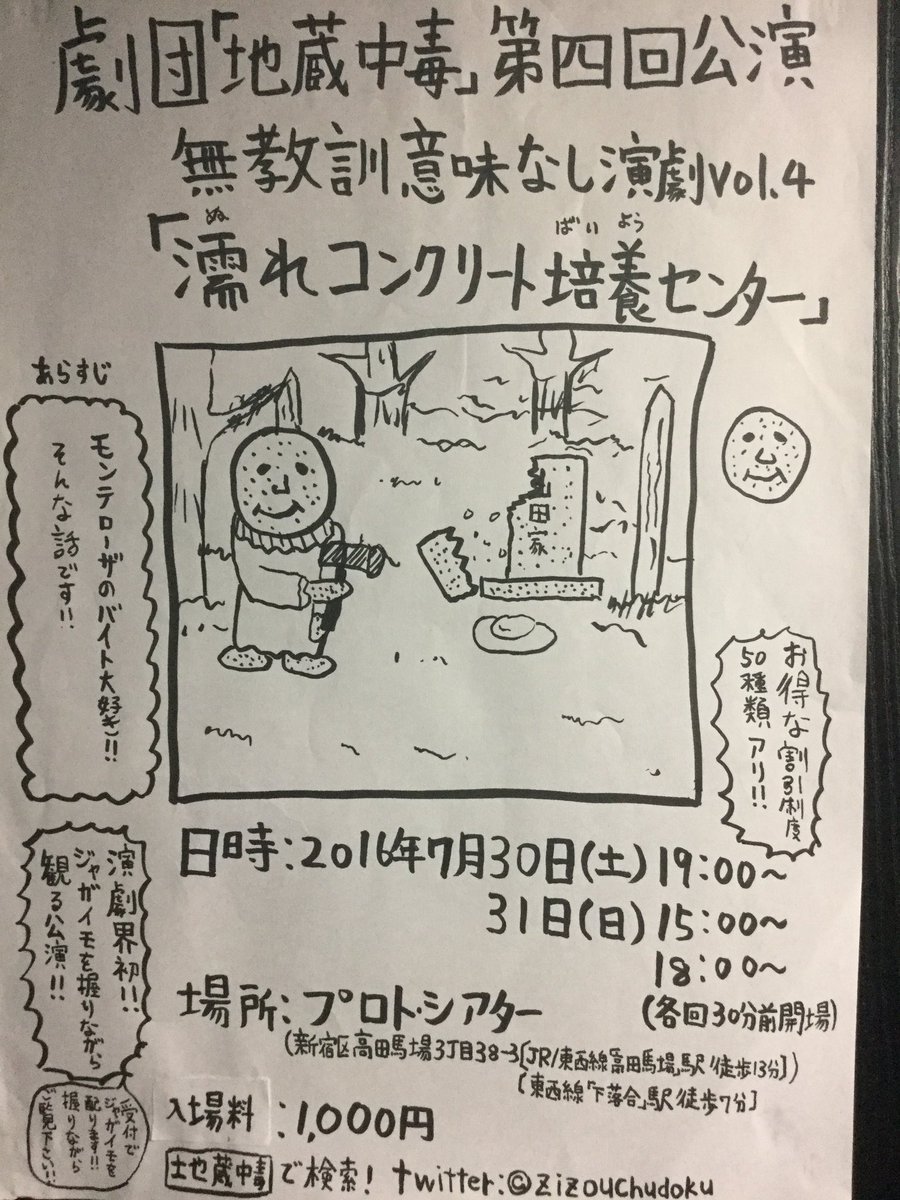 劇団「地蔵中毒」第四回公演
無教訓意味なし演劇vol.4
ぬ
ばいよう
「濡れコンクリート培養センター」
あらすじ
モンテローザのバイト大好き!!
そんな話です!!
田家
お得な割引制度
50種類アリ!!
演劇界初!!
ジャガイモを握りながら
観る公演!!
受付で
ジャガイモを
配ります!!
握りながら
ご覧下さい!!
日時:2016年7月30日(土)19:00～
31日(日)15:00～
18:00～
(各回30分前開場)
場所:プロト・シアター
(新宿区高田馬場3丁目38-3[JR/東西線「高田馬場」駅/徒歩13分])
[東西線「下落合」駅/徒歩7分]
入場料:1,000円
地蔵中毒で検索! twitter:@zizouchudoku